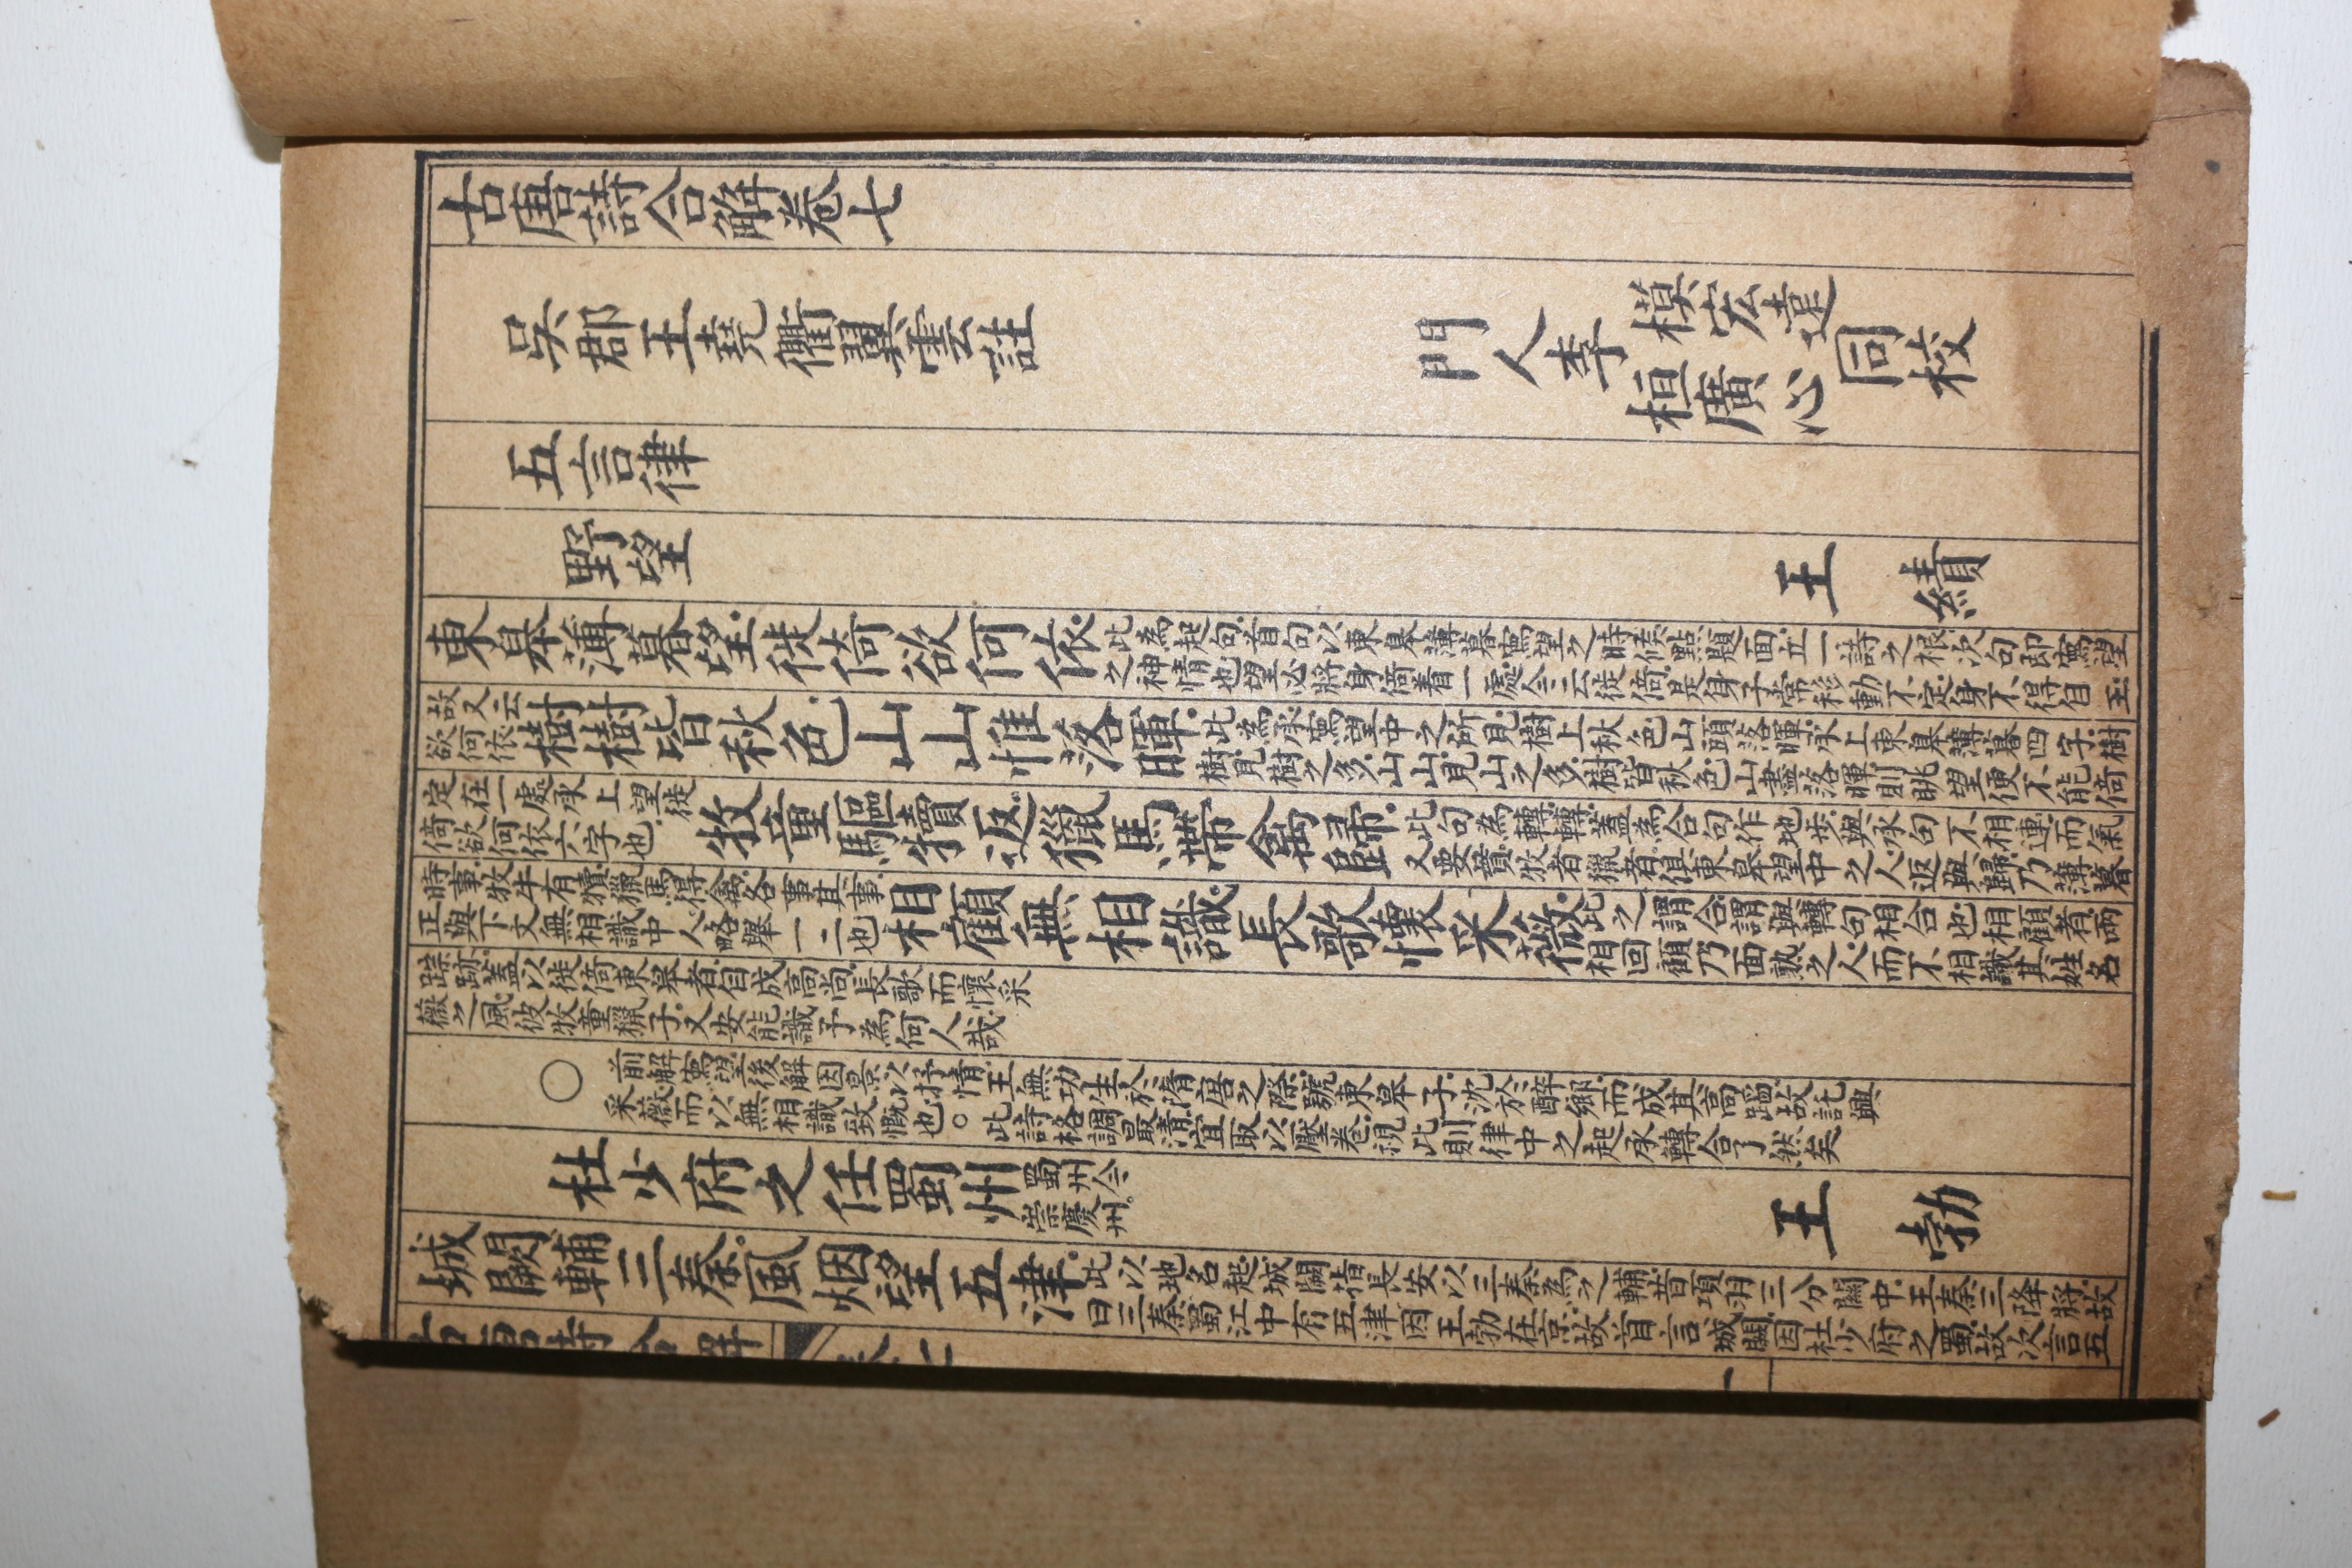 古唐詩合解卷七
吳郡王堯衢翼雲註　門人李
模宏遠
桓廣心
同校
五言律
野望　王績
東臯薄暮望徙倚欲何依
此為起句首句以東臯薄暮寫望之時候點題面立一詩之根次句即寫望
之神情也望必將身倚着一處今云徙倚是身子常移動不定身不得自主
故又云
欲何依
樹樹皆秋色山山惟落暉
此為承寫望中之所見樹上秋色山頭落暉承上東臯薄暮四字樹
樹見樹之多山山見山之多樹皆秋色山盡落暉則眺望便不能倚
定在一處承上望徙
倚欲何依六字也
牧童驅犢返獵馬帶禽歸
此句為轉轉蓋為合句作地步與承句不相連而氣
又要貫牧者獵者俱東臯望中之人返與歸乃薄暮
時事牧牛有犢獵馬得禽各事其事
正與下文無相識中人略舉一二也
相顧無相識長歌懷采薇
此之謂合謂與轉句相合也相顧者兩
相回顧乃面熟之人而不相識其姓名
踪跡蓋以徙倚東臯者自成高尚長歌而懷采
薇之風彼牧童獵子又安能識予為何人哉
○
前解寫望後解因景以抒情王無功生於隋唐之際號東臯子沈於醉鄉而成其高蹈故託興
采薇而以無相識致慨也。此詩格調最清宜取以壓卷視此則律中之起承轉合了然矣
杜少府之任蜀州
蜀州今
崇慶州。
王勃
城闕輔三秦風烟望五津
此以地名起城闕指長安以三秦為之輔昔項羽三分關中王秦三降將故
曰三秦蜀江中有五津因王勃在京故首言城闕因杜少府之蜀故次言五